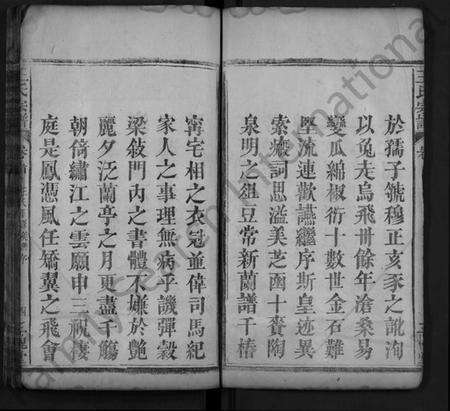 於孺子號穆正亥豕之訛洵
以兔走烏飛卅餘年滄桑易
變瓜綿椒衍十數世金石難
堅流連歡讌繼序斯皇迹異
索瘢詞思溢美芝函十賚陶
泉明之俎豆常新蘭譜千樁
甯宅相之衣冠並偉司馬紀
家人之事理無病乎譏彈穀
梁敍門內之書體不嫌於艷
麗夕泛蘭亭之月更盡千觴
朝倚繡江之雲願申三祝棲
庭是鳳憑風任矯翼之飛會
王氏宗譜
王氏宗譜
FamilySearch International